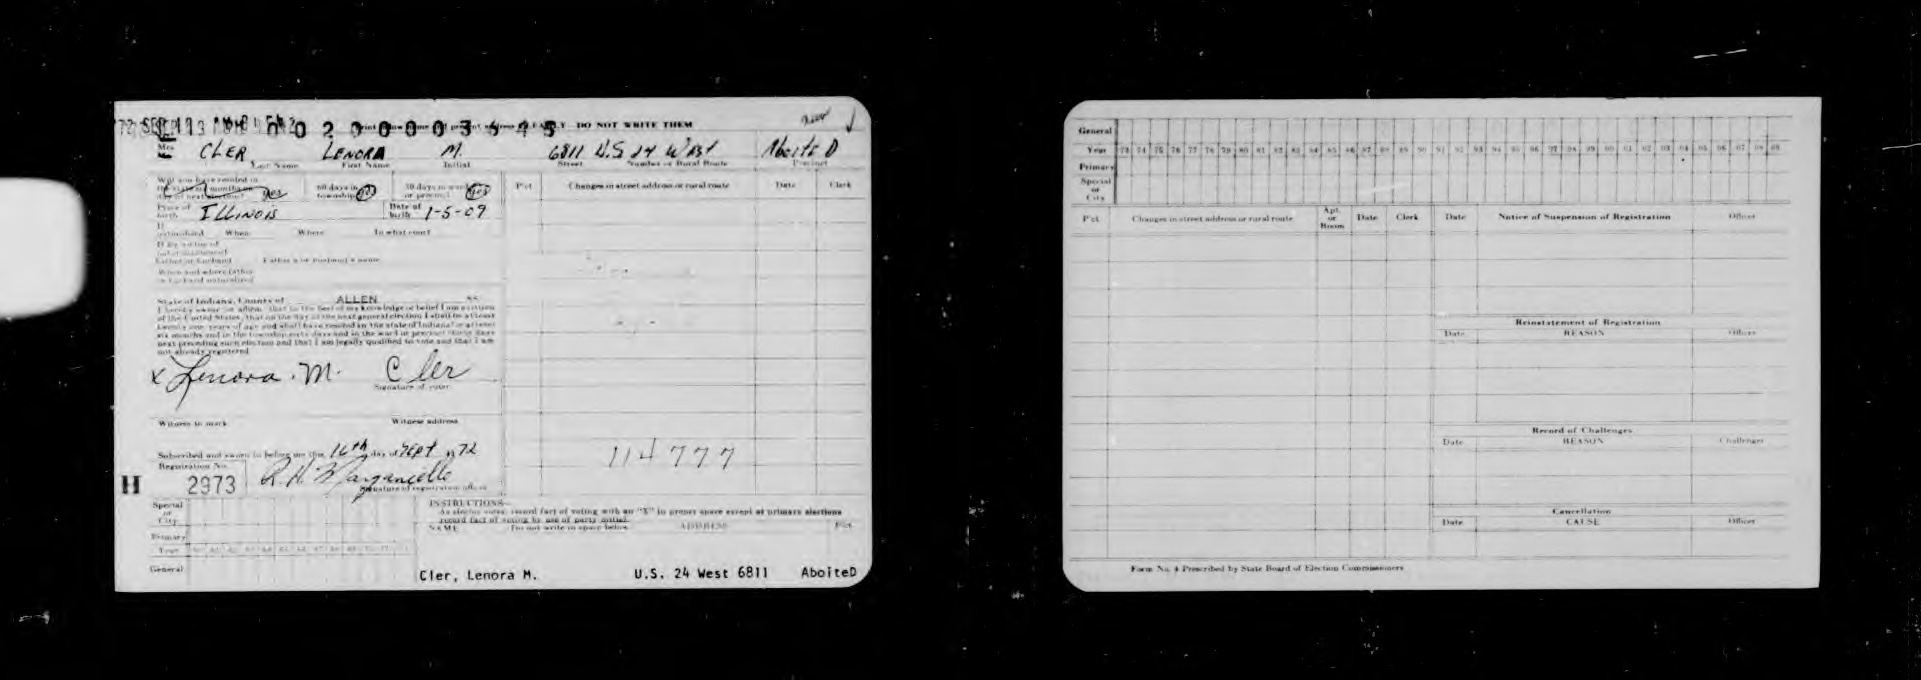 DO NOT WRITE THEM
Mrs. CLER LENORA M. 6811 U.S 24 West Aboite D
Last Name First Name Initial Street Number or Rural Route Precinct
Will you have resided in
the state six months on
day of next election? yes
60 days in
township yes
30 days in ward
or precinct yes
Place of
birth ILLINOIS
Date of
birth 1-5-09
If
naturalized When Where In what court
Father's or husband's name
When and where father
or husband naturalized
State of Indiana, County of ALLEN SS
I hereby swear (or affirm) that to the best of my knowledge or belief I am a citizen
of the United States, that on the day of the next general election I shall be at least
twenty one years of age and shall have resided in the state of Indiana for at least
six months and in the township sixty days and in the ward or precinct thirty days
next preceding such election and that I am legally qualified to vote and that I am
not already registered
x Lenora M. Cler
Signature of voter
Witness to mark Witness address
Subscribed and sworn to before me this 16th day of Sept 1972
Registration No.
H 2973
Signature of registration officer
Pct. Changes in street address or rural route Date Clerk
114777
Special
or
City
Primary
Year
General
INSTRUCTIONS
As elector votes, record fact of voting with an "X" in proper space except at primary elections
record fact of voting by use of party initial.
NAME (Do not write in space below) ADDRESS Pct.
Cler, Lenora M. U.S. 24 West 6811 AboiteD
General
Year 73 74 75 76 77 78 79 80 81 82 83 84 85 86 87 88 89 90 91 92 93 94 95 96 97 98 99 00 01 02 03 04 05 06 07 08 09
Primary
Special
or
City
Pct. Changes in street address or rural route Apt.
or
Room Date Clerk Date Notice of Suspension of Registration Officer
Reinstatement of Registration
Date REASON Officer
Record of Challenges
Date REASON Challenger
Cancellation
Date CAUSE Officer
Form No. 4 Prescribed by State Board of Election Commissioners